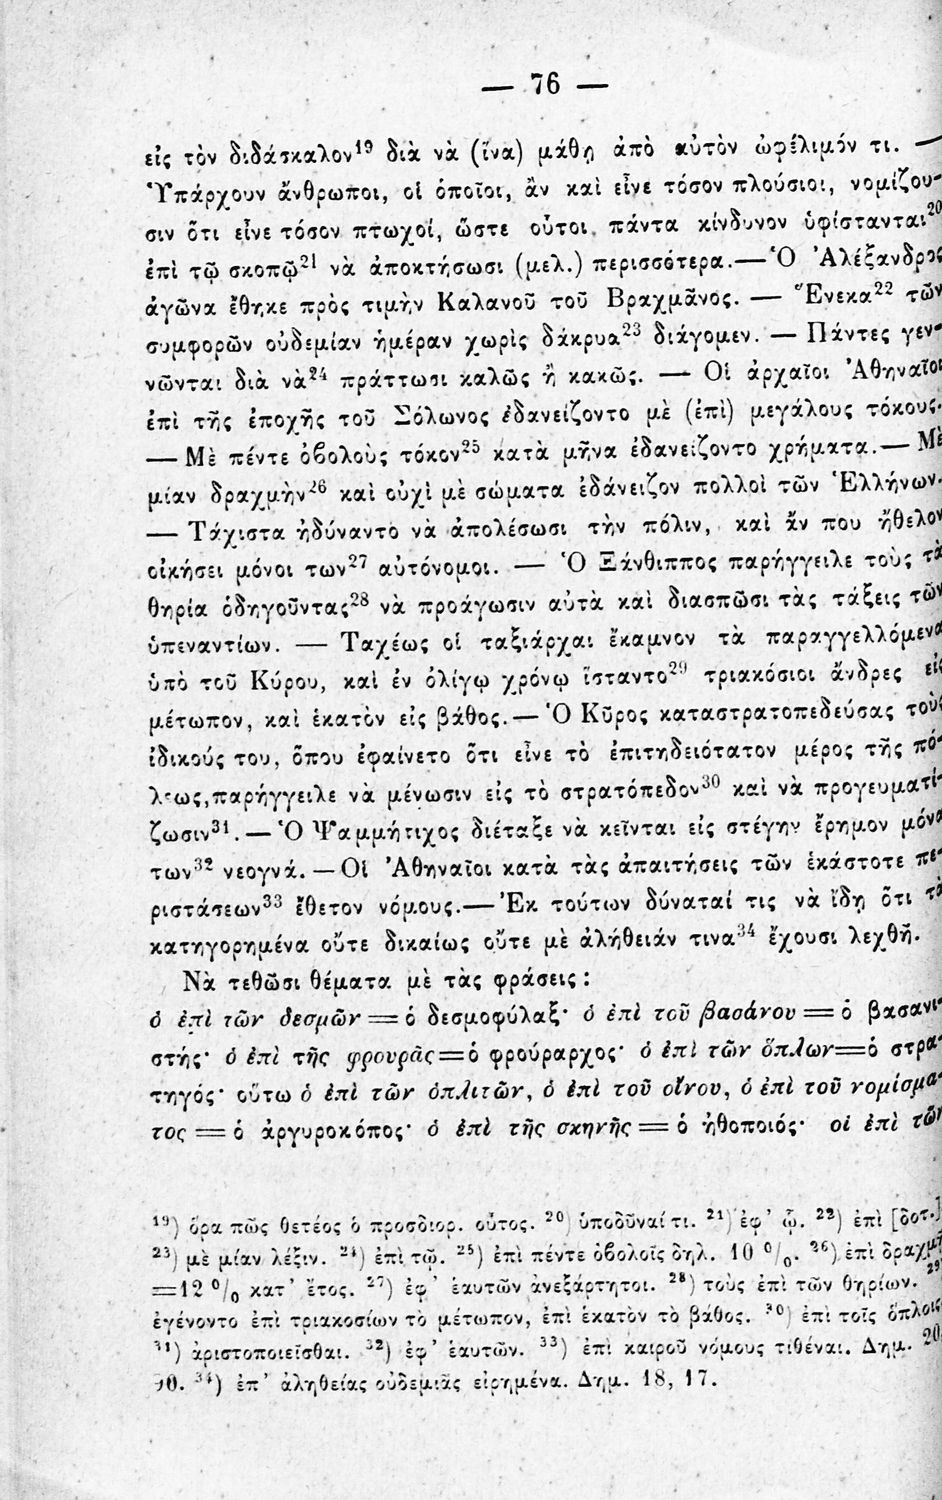 — 76 —
εἰς τὸν διδάσκαλον¹⁹ διὰ νὰ (ἵνα) μάθῃ ἀπὸ αὐτὸν ὠφέλιμόν τι. —
Ὑπάρχουν ἄνθρωποι, οἱ ὁποῖοι, ἂν καὶ εἶνε τόσον πλούσιοι, νομίζου-
σιν ὅτι εἶνε τόσον πτωχοί, ὥστε οὗτοι πάντα κίνδυνον ὑφίστανται²⁰
ἐπὶ τῷ σκοπῷ²¹ νὰ ἀποκτήσωσι (μελ.) περισσότερα.— Ὁ Ἀλέξανδρος
ἀγῶνα ἔθηκε πρὸς τιμὴν Καλανοῦ τοῦ Βραχμᾶνος. — Ἕνεκα²² τῶν
συμφορῶν οὐδεμίαν ἡμέραν χωρὶς δάκρυα²³ διάγομεν. — Πάντες γεν-
νῶνται διὰ νὰ²⁴ πράττωσι καλῶς ἢ κακῶς. — Οἱ ἀρχαῖοι Ἀθηναῖοι
ἐπὶ τῆς ἐποχῆς τοῦ Σόλωνος ἐδανείζοντο μὲ (ἐπὶ) μεγάλους τόκους.
— Μὲ πέντε ὀβολοὺς τόκον²⁵ κατὰ μῆνα ἐδανείζοντο χρήματα.— Μὲ
μίαν δραχμὴν²⁶ καὶ οὐχὶ μὲ σώματα ἐδάνειζον πολλοὶ τῶν Ἑλλήνων.
— Τάχιστα ἠδύναντο νὰ ἀπολέσωσι τὴν πόλιν, καὶ ἄν που ἤθελον
οἰκήσει μόνοι των²⁷ αὐτόνομοι. — Ὁ Ξάνθιππος παρήγγειλε τοὺς τὰ
θηρία ὁδηγοῦντας²⁸ νὰ προάγωσιν αὐτὰ καὶ διασπῶσι τὰς τάξεις τῶν
ὑπεναντίων. — Ταχέως οἱ ταξιάρχαι ἔκαμνον τὰ παραγγελλόμενα
ὑπὸ τοῦ Κύρου, καὶ ἐν ὀλίγῳ χρόνῳ ἵσταντο²⁹ τριακόσιοι ἄνδρες εἰς
μέτωπον, καὶ ἑκατὸν εἰς βάθος.— Ὁ Κῦρος καταστρατοπεδεύσας τοὺς
ἰδικούς του, ὅπου ἐφαίνετο ὅτι εἶνε τὸ ἐπιτηδειότατον μέρος τῆς πό-
λεως, παρήγγειλε νὰ μένωσιν εἰς τὸ στρατόπεδον³⁰ καὶ νὰ προγευματί-
ζωσιν³¹. — Ὁ Ψαμμήτιχος διέταξε νὰ κεῖνται εἰς στέγην ἔρημον μόνα
των³² νεογνά. — Οἱ Ἀθηναῖοι κατὰ τὰς ἀπαιτήσεις τῶν ἑκάστοτε πε-
ριστάσεων³³ ἔθετον νόμους.— Ἐκ τούτων δύναταί τις νὰ ἴδῃ ὅτι τὰ
κατηγορημένα οὔτε δικαίως οὔτε μὲ ἀλήθειάν τινα³⁴ ἔχουσι λεχθῆ.
Νὰ τεθῶσι θέματα μὲ τὰς φράσεις:
ὁ ἐπὶ τῶν δεσμῶν = ὁ δεσμοφύλαξ· ὁ ἐπὶ τοῦ βασάνου = ὁ βασανι-
στής· ὁ ἐπὶ τῆς φρουρᾶς = ὁ φρούραρχος· ὁ ἐπὶ τῶν ὅπλων = ὁ στρα-
τηγός· οὕτω ὁ ἐπὶ τῶν ὁπλιτῶν, ὁ ἐπὶ τοῦ οἴνου, ὁ ἐπὶ τοῦ νομίσμα-
τος = ὁ ἀργυροκόπος· ὁ ἐπὶ τῆς σκηνῆς = ὁ ἠθοποιός· οἱ ἐπὶ τῶν
¹⁹) ὅρα πῶς θετέος ὁ προσδιορ. οὗτος. ²⁰) ὑποδῦναί τι. ²¹) ἐφ' ᾧ. ²²) ἐπὶ [δοτ.]
²³) μὲ μίαν λέξιν. ²⁴) ἐπὶ τῷ. ²⁵) ἐπὶ πέντε ὀβολοῖς δηλ. 10 %. ²⁶) ἐπὶ δραχμῇ
=12 % κατ' ἔτος. ²⁷) ἐφ' ἑαυτῶν ἀνεξάρτητοι. ²⁸) τοὺς ἐπὶ τῶν θηρίων. ²⁹
ἐγένοντο ἐπὶ τριακοσίων τὸ μέτωπον, ἐπὶ ἑκατὸν τὸ βάθος. ³⁰) ἐπὶ τοῖς ὅπλοις
³¹) ἀριστοποιεῖσθαι. ³²) ἐφ' ἑαυτῶν. ³³) ἐπὶ καιροῦ νόμους τιθέναι. Δημ. 20,
90. ³⁴) ἐπ' ἀληθείας οὐδεμιᾶς εἰρημένα. Δημ. 18, 17.